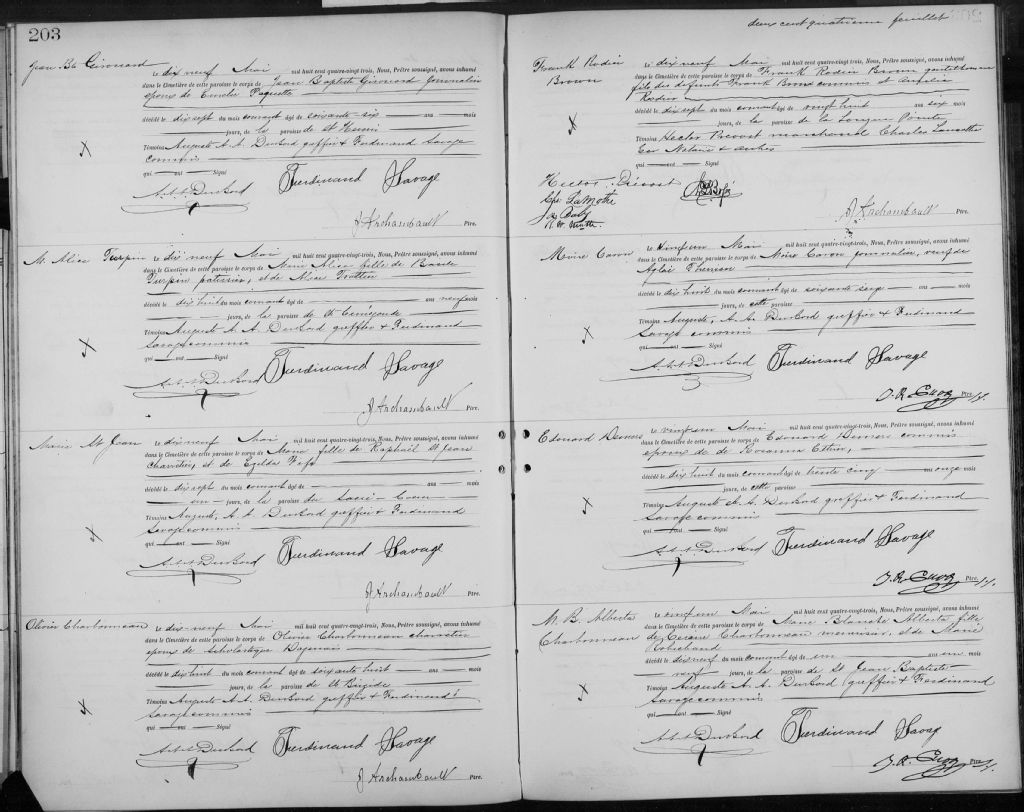 203
Jean Bte Girouard
Le dix neuf Mai mil huit cent quatre-vingt-trois, Nous, Prêtre soussigné, avons inhumé
dans le Cimetière de cette paroisse le corps de Jean Baptiste Girouard journalier
époux de Emelie Paquette
décédé le dix sept du mois courant âgé de soixante-six ans mois
jours, de la paroisse de St Henri
Témoins Auguste A. A. DuBord greffier & Ferdinand Savage
commis
qui ont Signé
A.A.A. DuBord Ferdinand Savage
J Archambault Ptre.
M. Alice Turpin
Le dix neuf Mai mil huit cent quatre-vingt-trois, Nous, Prêtre soussigné, avons inhumé
dans le Cimetière de cette paroisse le corps de Marie Alice fille de Basile
Turpin patissier, et de Alice Trottier
décédé le dix huit du mois courant âgé de ans neuf mois
jours, de la paroisse de St Cunégonde
Témoins Auguste A. A. DuBord greffier & Ferdinand
Savage commis
qui ont Signé
A.A.A. DuBord Ferdinand Savage
J Archambault Ptre.
Marie St Jean
Le dix-neuf Mai mil huit cent quatre-vingt-trois, Nous, Prêtre soussigné, avons inhumé
dans le Cimetière de cette paroisse le corps de Marie fille de Raphaël St Jean
charretier, et de Exilda
décédé le dix sept du mois courant âgé de ans mois
un jours, de la paroisse du Sacré-Coeur
Témoins Auguste, A. A. DuBord greffier & Ferdinand
Savage commis
qui ont Signé
A.A.A. DuBord Ferdinand Savage
J Archambault Ptre.
Olivier Charbonneau
Le dix-neuf Mai mil huit cent quatre-vingt-trois, Nous, Prêtre soussigné, avons inhumé
dans le Cimetière de cette paroisse le corps de Olivier Charbonneau charretier
époux de Scholastique Dagenais
décédé le dix huit du mois courant âgé de soixante huit ans mois
jours, de la paroisse de St Brigide
Témoins Auguste A. A. DuBord greffier & Ferdinand
Savage commis
qui ont Signé
A.A.A. DuBord Ferdinand Savage
J Archambault Ptre.
deux cent quatrieme feuillet
Frank Rodier
Brown
Le dix neuf Mai mil huit cent quatre-vingt-trois, Nous, Prêtre soussigné, avons inhumé
dans le Cimetière de cette paroisse le corps de Frank Rodier Brown gentilhomme
fils des défunts Frank Brown commis et Amelia
Rodier
décédé le dix sept du mois courant âgé de vingt huit ans six mois
jours, de la paroisse de la Longue Pointe
Témoins Hector Prévost marchand Charles Lamothe
& autres
qui ont Signé
Hector Prévost
Chs LaMothe
J Archambault Ptre.
Moïse Caron
Le vingt un Mai mil huit cent quatre-vingt-trois, Nous, Prêtre soussigné, avons inhumé
dans le Cimetière de cette paroisse le corps de Moïse Caron journalier, veuf de
Aglaé Therrien
décédé le dix huit du mois courant âgé de soixante seize ans mois
jours, de cette paroisse
Témoins Auguste, A. A. DuBord greffier & Ferdinand
Savage commis
qui ont Signé
A.A.A. DuBord Ferdinand Savage
Ptre
Edouard Demers
Le vingt un Mai mil huit cent quatre-vingt-trois, Nous, Prêtre soussigné, avons inhumé
dans le Cimetière de cette paroisse le corps de Edouard Demers commis
époux de de Rosanna Ethier,
décédé le dix huit du mois courant âgé de trente cinq ans onze mois
jours, de cette paroisse
Témoins Auguste A. A. DuBord greffier & Ferdinand
Savage commis
qui ont Signé
A.A.A. DuBord Ferdinand Savage
Ptre
M. B. Alberta
Charbonneau
Le vingt un Mai mil huit cent quatre-vingt-trois, Nous, Prêtre soussigné, avons inhumé
dans le Cimetière de cette paroisse le corps de Marie Blanche Alberta fille
de Césaire Charbonneau menuisier, et de Marie
Robichaud
décédé le dix neuf du mois courant âgé de un ans un mois
neuf jours, de la paroisse de St Jean Baptiste
Témoins Auguste A. A. DuBord greffier & Ferdinand
Savage commis
qui ont Signé
A.A.A. DuBord Ferdinand Savage
Ptre